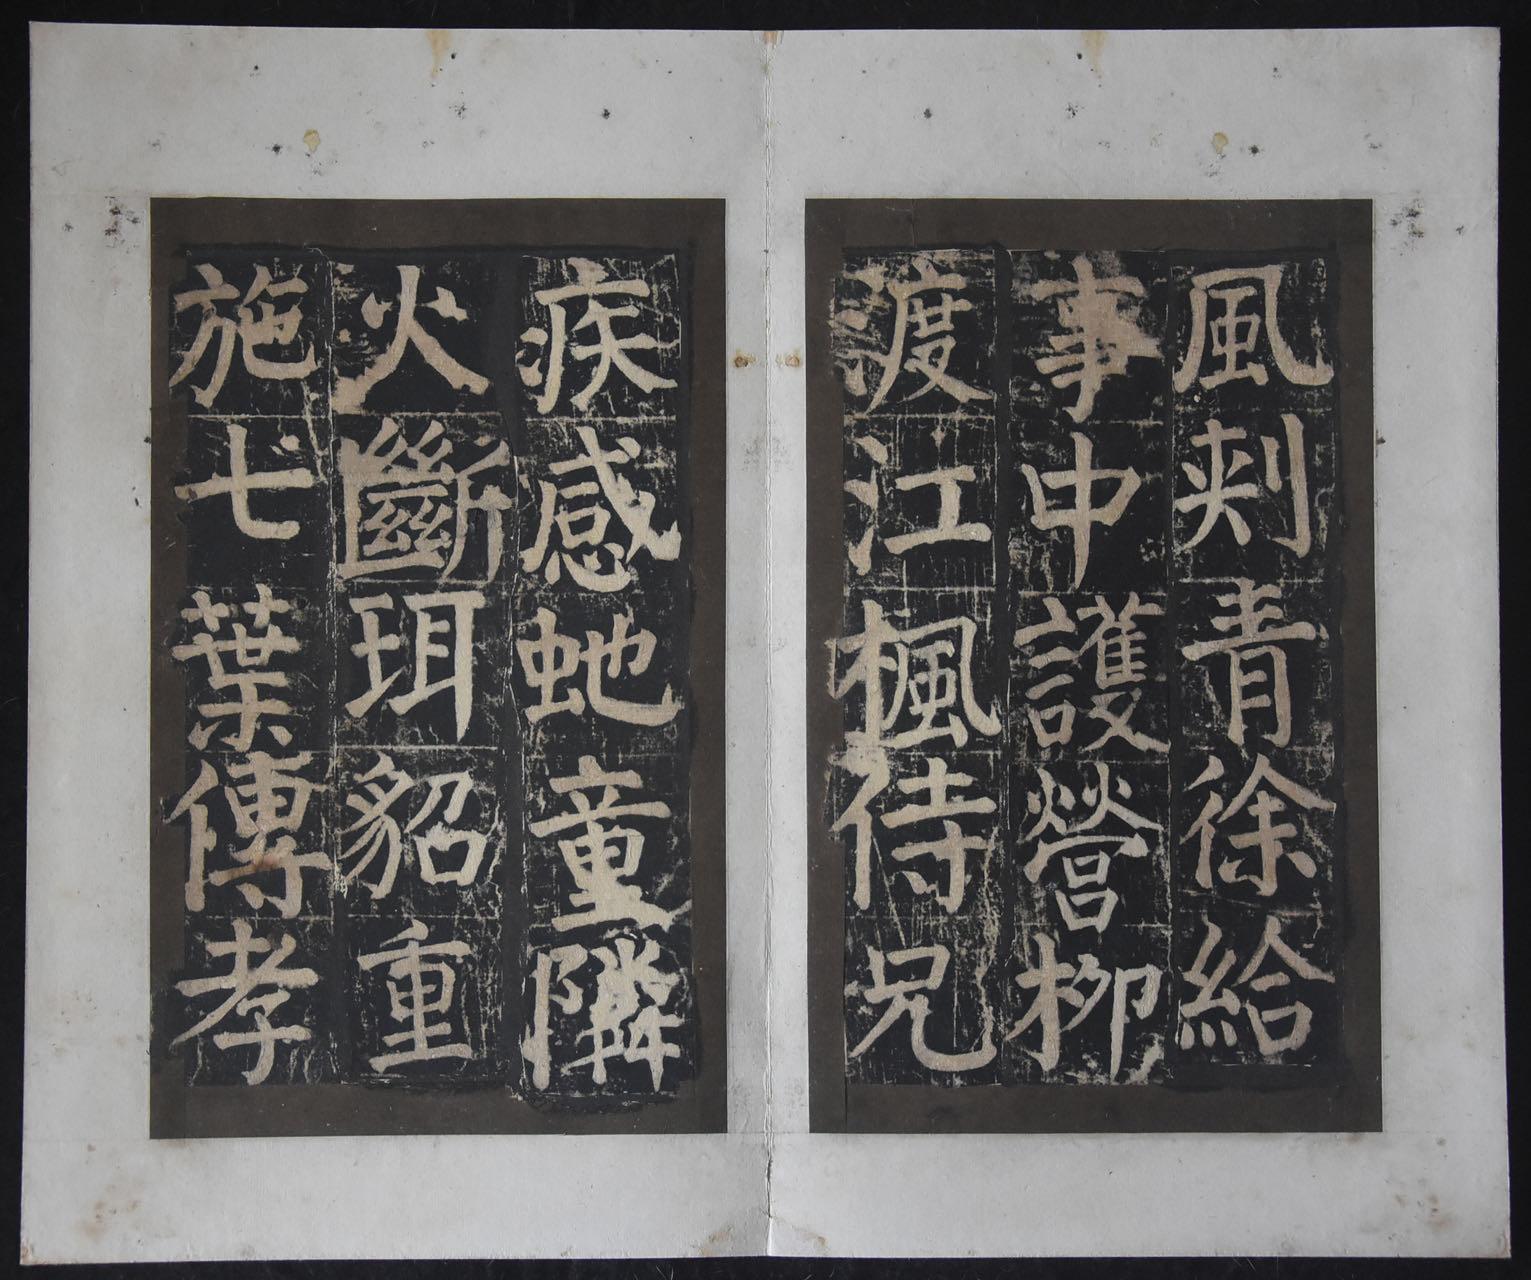 風刾青徐給
事中護營柳
渡江楓侍兄
疾感虵童隣
火斷珥貂重
施七葉傳孝